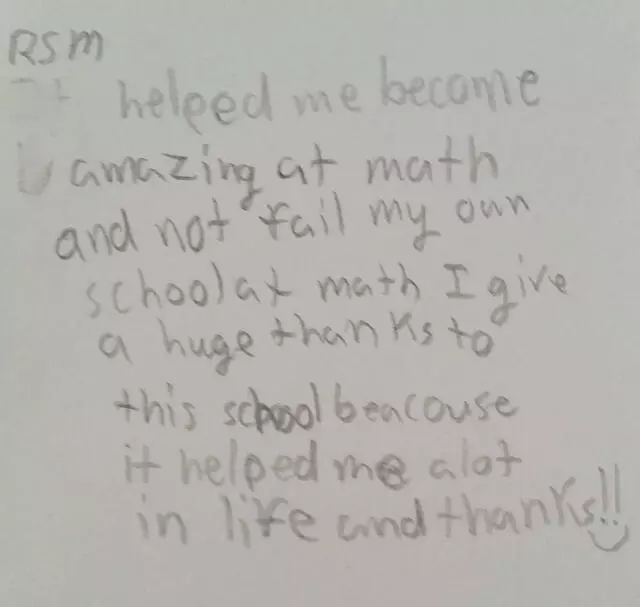 RSM
helped me become
amazing at math
and not fail my own
school at math I give
a huge thanks to
this school beacouse
it helped me alot
in life and thanks!!